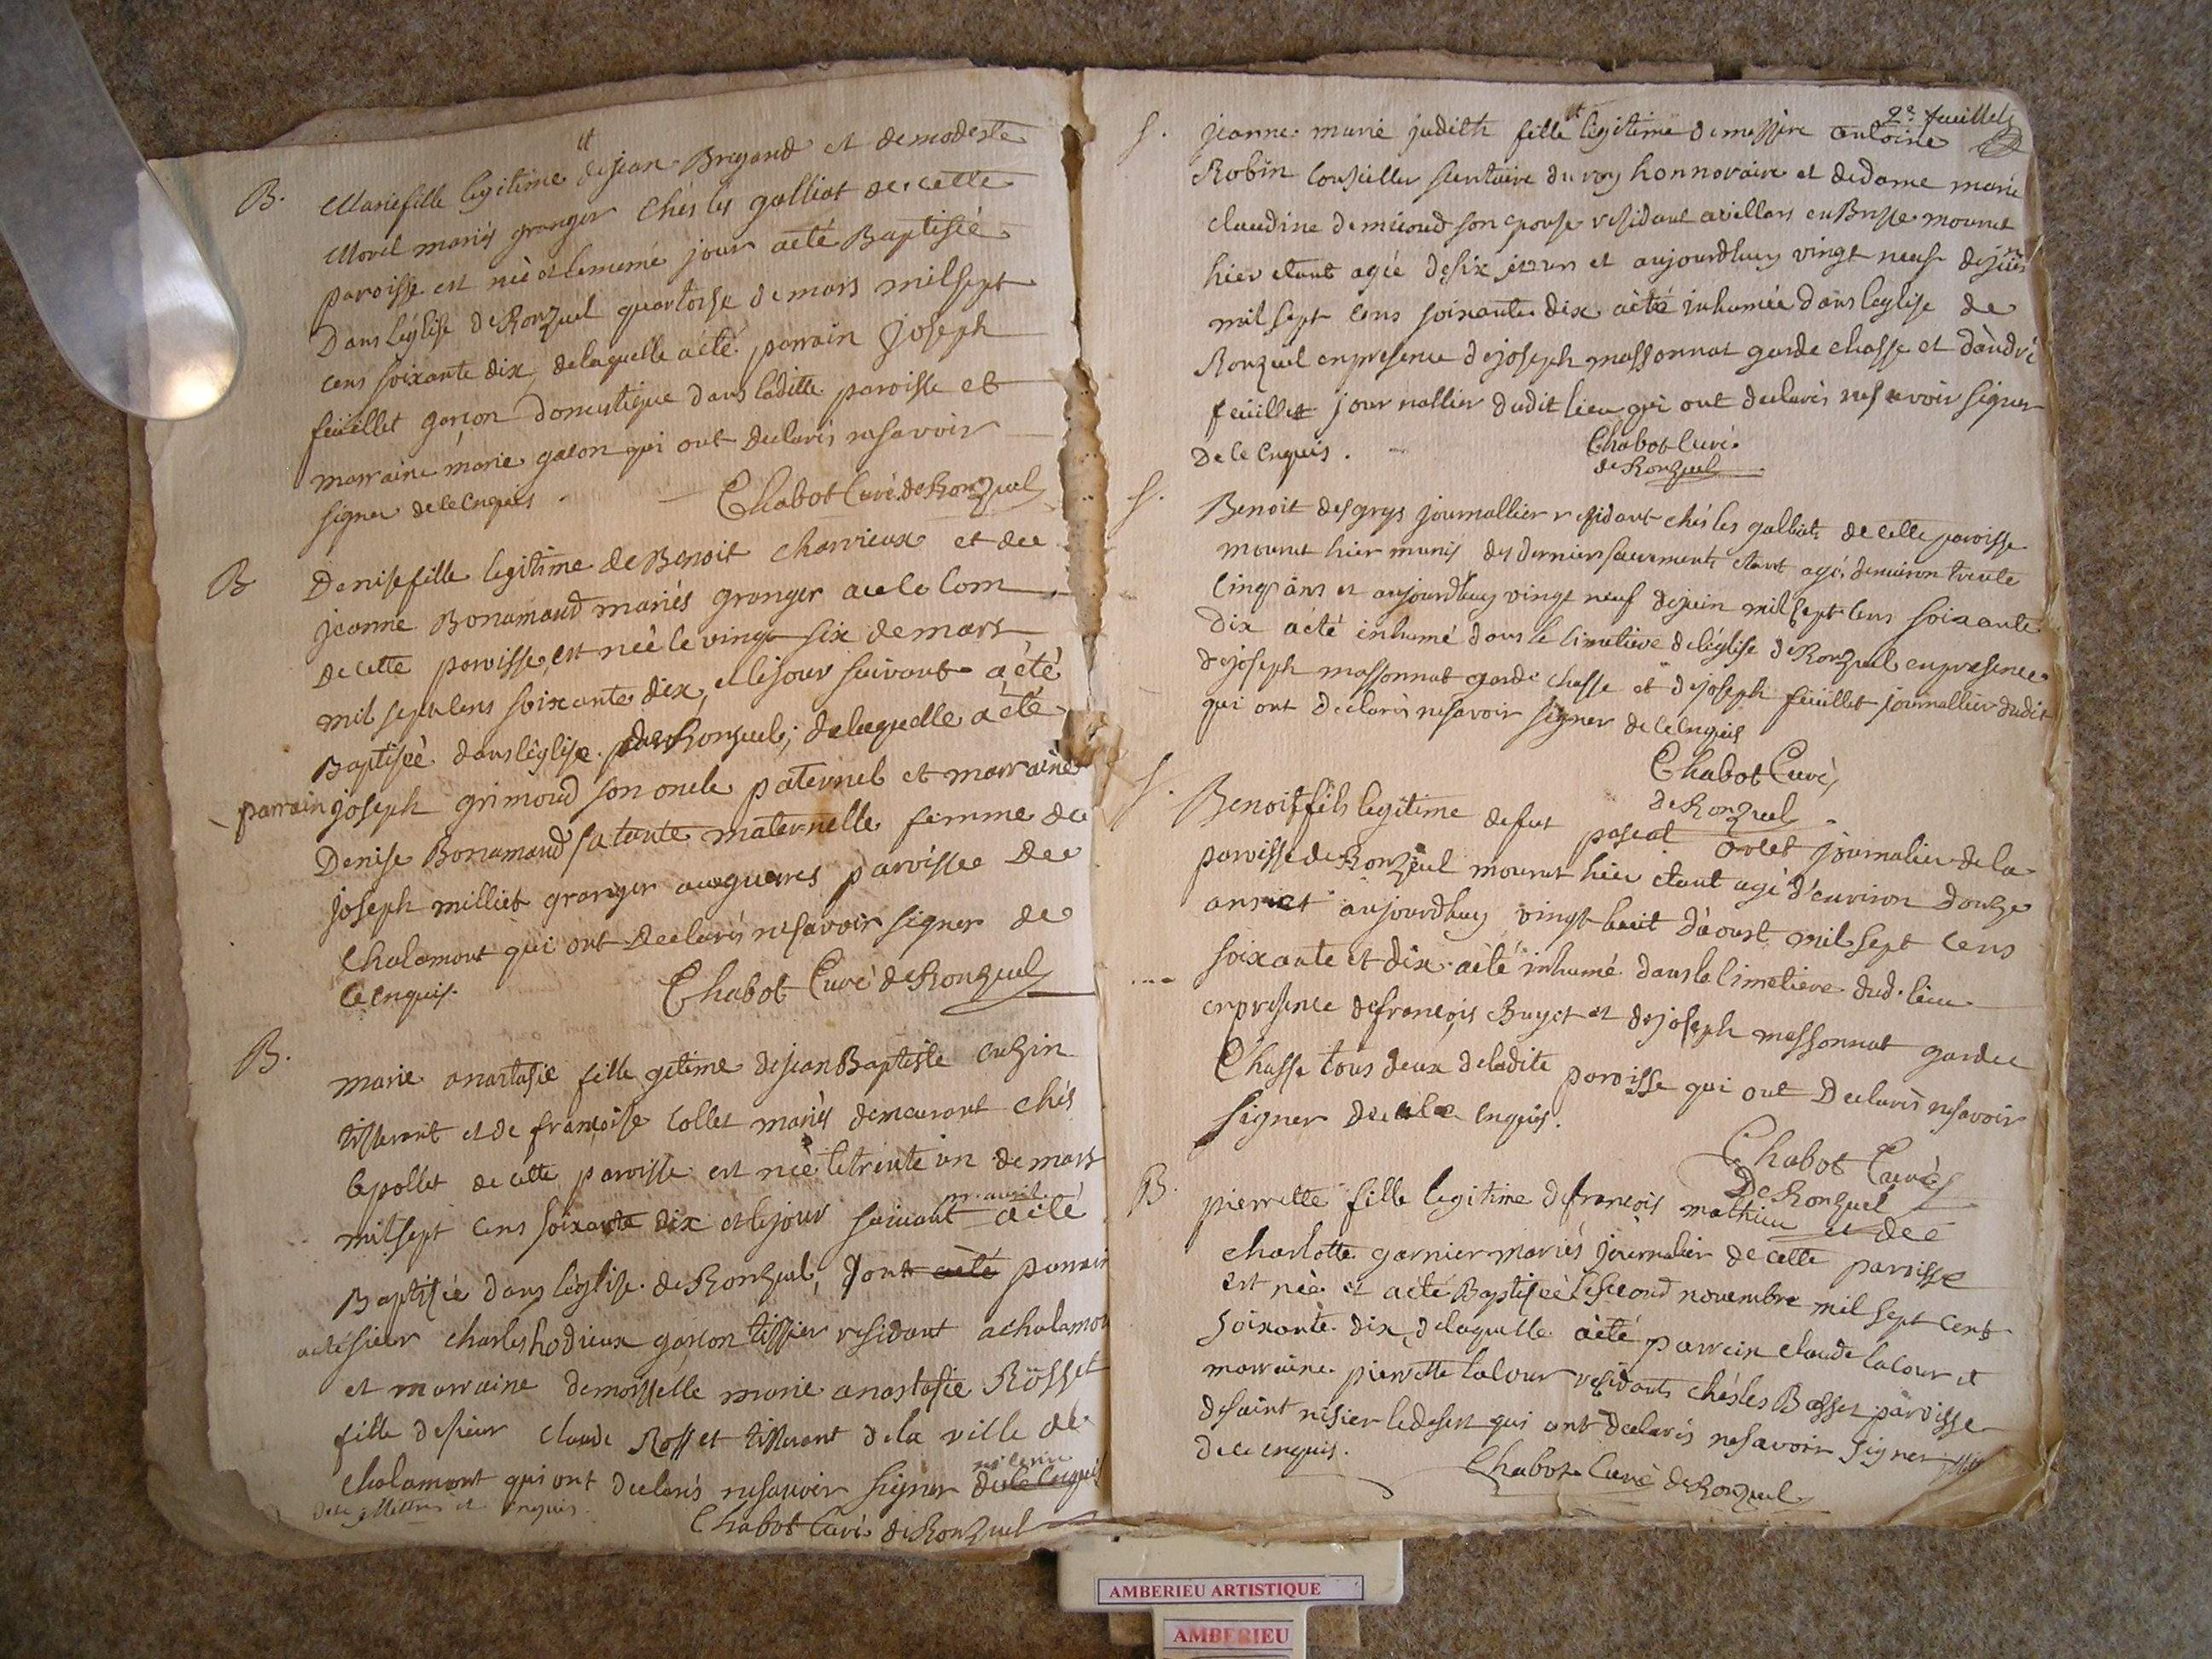 B. Marie fille legitime de jean Brigand et de modeste
Morel mariés granger chés les galliat de cette
paroisse est née et le meme jour a eté Baptisée
Dans l'église de Ronzuel quatorse de mars mil sept
cens soixante dix, de laquelle a eté parrain joseph
feüillet garçon domestique dans laditte paroisse et
marraine marie galon qui ont declarés ne savoir
signer de ce enquis. Chabot Curé de Ronzuel
B Denise fille legitime de Benoit charvieux et de
jeanne Bonamaud mariés granger
de cette paroisse, est née le vingt six de mars
mil sept cens soixante dix, et le jour suivant a été
Baptisée dans l'église de Ronzuel; de laquelle a été
parrain joseph grimoud son oncle paternel et marraine
Denise Bonamaud sa tante maternelle femme de
joseph milliet granger aux gueures paroisse de
Chalamont qui ont declarés ne savoir signer de
ce enquis. Chabot Curé de Ronzuel
B. marie anastasie fille gitime de jean Baptiste cuzin
tisserant et de françoise Collet mariés demeurant chés
le pollet de cette paroisse est née le trente un de mars
mil sept cens soixante dix et le jour suivant a eté
Baptisée dans l'église de Ronzuel, dont a eté parrain
a eté sieur charles hodieux garçon tissier residant a chalamon
et marraine demoisselle marie anastasie Rosset
fille de sieur claude Rosset tisserant de la ville de
chalamont qui ont declarés ne savoir signer de ce enquis
de ce enquis.
Chabot Curé de Ronzuel
2e feuillet
S. jeanne marie judith fille legitime de messire antoine
Robin Conseiller secretaire du roy honnoraire et de dame marie
claudine de micoud son epouse residant a villars en Bresse mourut
hier etant agée de six ans et aujourdhuy vingt neuf de juin
mil sept cens soixante dix a eté inhumée dans leglise de
Ronzuel en presence de joseph massonnat garde chasse et d'andré
feüillet journallier dudit lieu qui ont declarés ne savoir signer
de ce enquis. Chabot Curé
de Ronzuel
S. Benoit desgrys journallier residant chés les galliat de cette paroisse
mourut hier munis des dernier sacrements etant agé d'environ trente
cinq ans et aujourdhuy vingt neuf de juin mil sept cens soixante
dix a été inhumé dans le cimetiere de l'église de Ronzuel en presence
de joseph massonnat garde chasse et de joseph feüillet journallier dudit
qui ont declarés ne savoir signer de ce enquis
Chabot Curé
de Ronzuel
S. Benoit fils legitime de feu pascal orset journalier de la
paroisse de Ronzuel mourut hier etant agé d'environ douze
ans et aujourdhuy vingt huit d'aoust mil sept cens
soixante et dix a été inhumé dans le cimetiere dud. lieu
en presence de françois Bruyet et de joseph massonnat garde
Chasse tous deux de ladite paroisse qui ont Declarés ne savoir
signer de ce enquis.
Chabot Curé
De Ronzuel
B. pierrette fille legitime de francois mathieu et de
charlotte garnier mariés journalier de cette paroisse
est née et a eté Baptisée le second novembre mil sept cent
soixante dix, de laquelle a eté parrain claude lacour et
marraine pierrette lacour residants chés les Basset paroisse
de saint nisier le desert qui ont declarés ne savoir signer
de ce enquis.
Chabot Curé de Ronzuel
AMBERIEU ARTISTIQUE
AMBERIEU